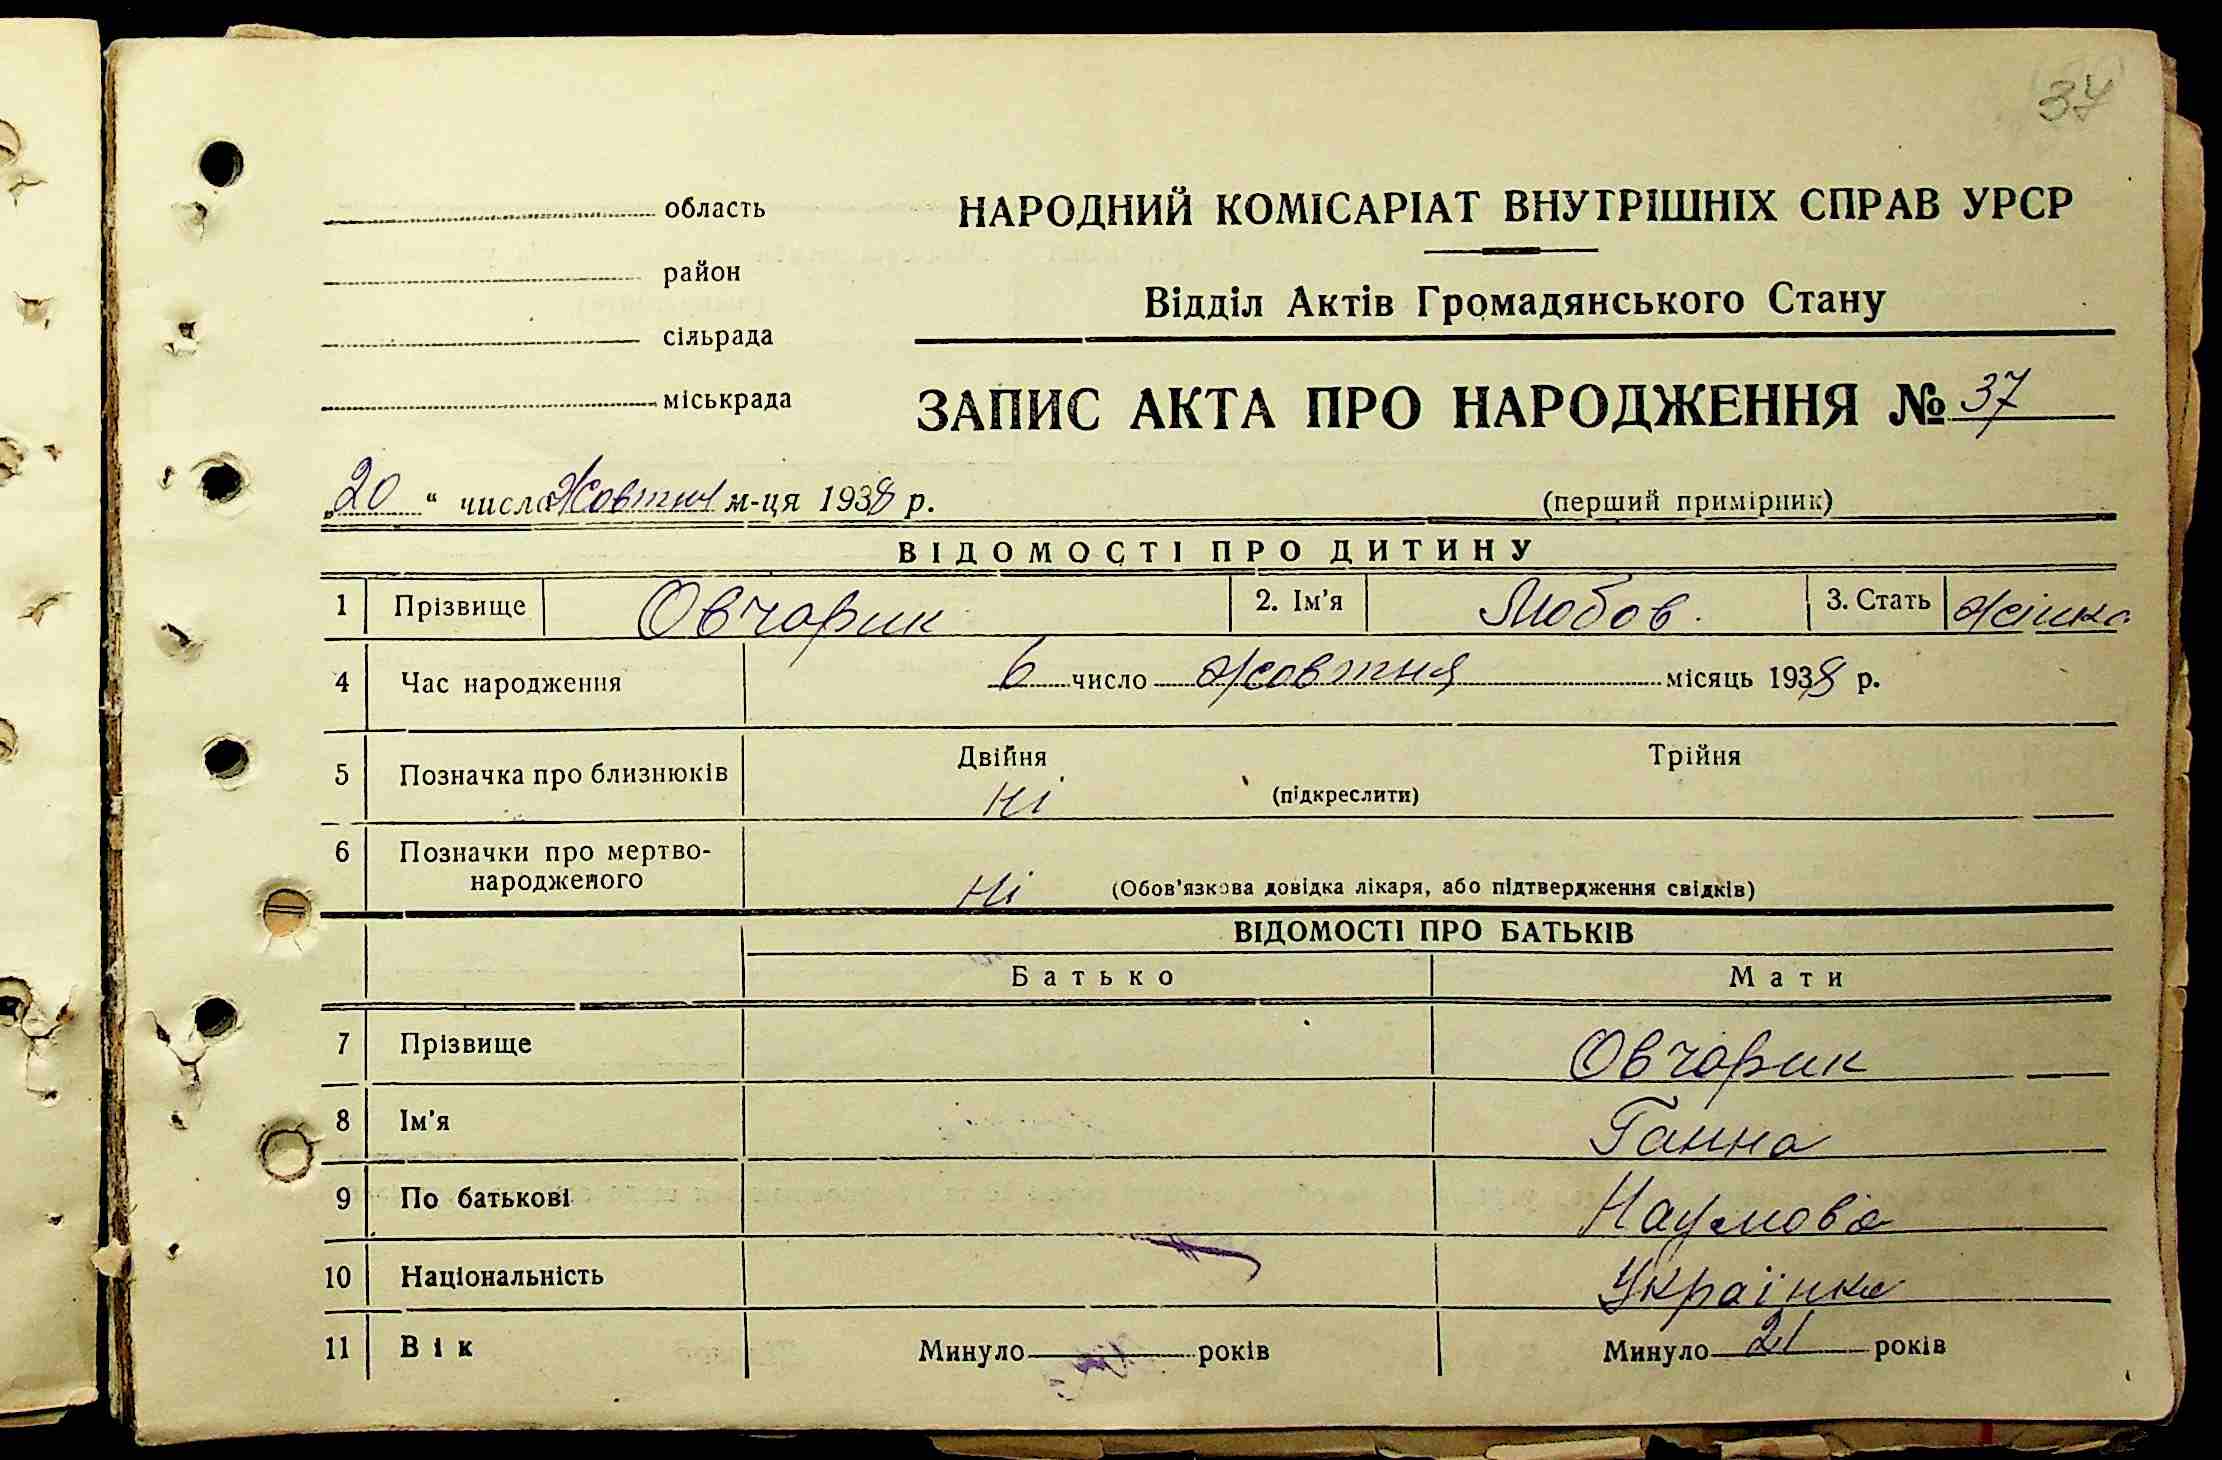 37
область
район
сільрада
міськрада
НАРОДНИЙ КОМІСАРІАТ ВНУТРІШНІХ СПРАВ УРСР
Відділ Актів Громадянського Стану
ЗАПИС АКТА ПРО НАРОДЖЕННЯ № 37
„20“ числа Жовтня м-ця 1938 р.
(перший примірник)
ВІДОМОСТІ ПРО ДИТИНУ
1 Прізвище Овчарик 2. Ім'я Любов. 3. Стать жінка
4 Час народження 6 число жовтня місяць 1938 р.
5 Позначка про близнюків Двійня Трійня
Ні (підкреслити)
6 Позначки про мертво-
народженого Ні (Обов'язкова довідка лікаря, або підтвердження свідків)
ВІДОМОСТІ ПРО БАТЬКІВ
Батько Мати
7 Прізвище Овчарик
8 Ім'я Ганна
9 По батькові Наумова
10 Національність Українка
11 Вік Минуло років Минуло 21 років